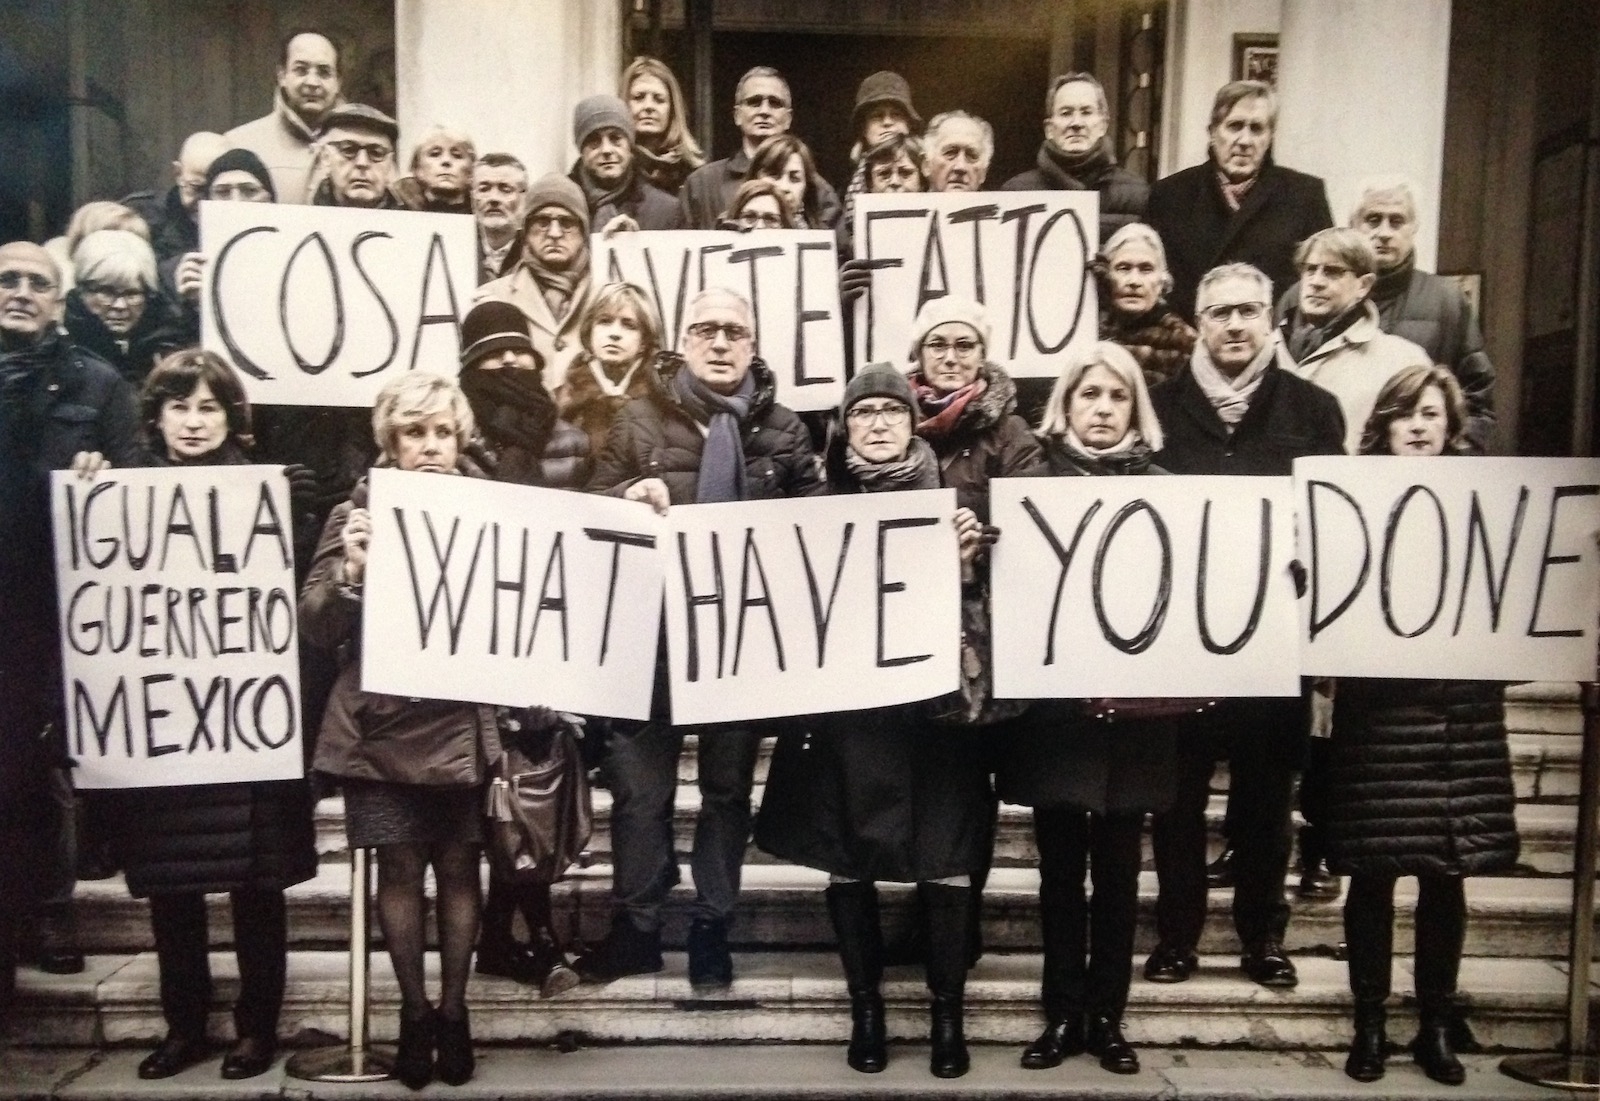 COSA AVETE FATTO
IGUALA
GUERRERO
MEXICO
WHAT HAVE YOU DONE